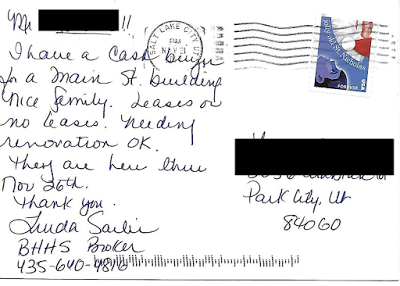 Mr !!
I have a Cash buyer
for a Main St. building
Nice family. Leases or
no leases. Needing
renovation OK.
They are here thru
Nov 26th.
Thank you.
Linda
BHHS Broker
435-640-4816
SALT LAKE CITY UT
PM
NOV 21
A Visit from St. Nicholas
FOREVER USA
Park City, Ut
84060